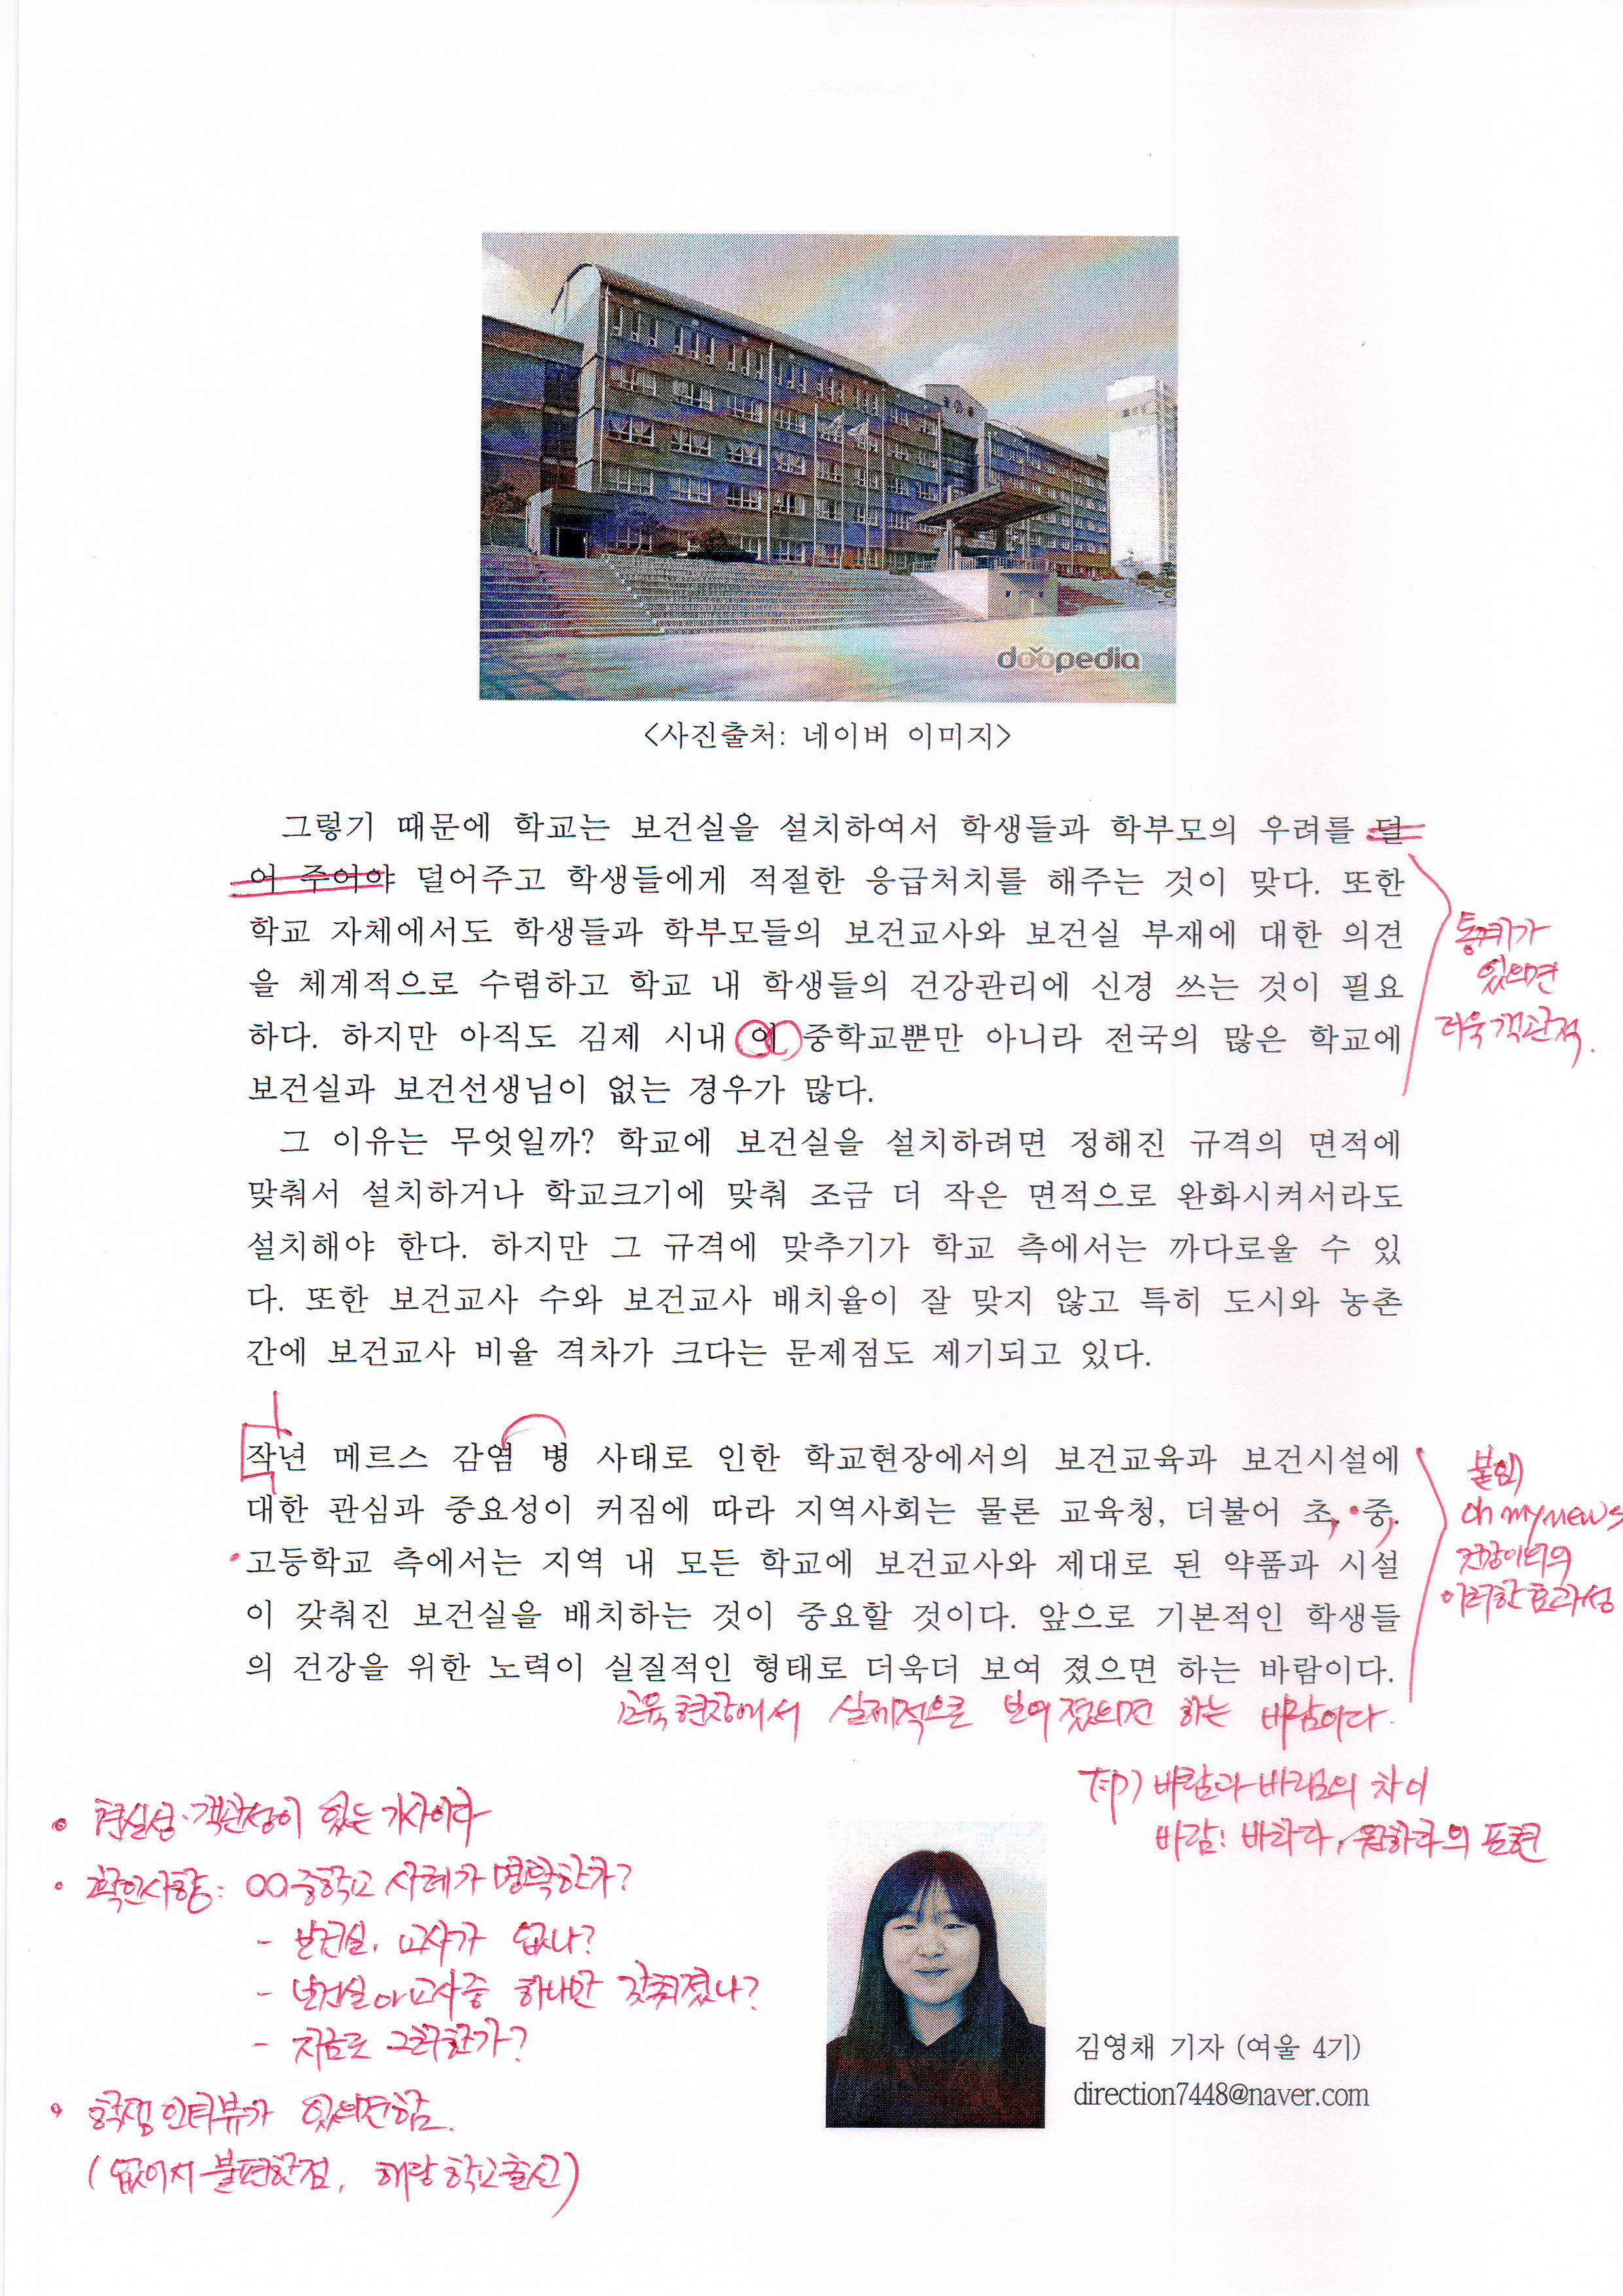 doopedia
<사진출처: 네이버 이미지>
그렇기 때문에 학교는 보건실을 설치하여서 학생들과 학부모의 우려를 덜
어 주어야 덜어주고 학생들에게 적절한 응급처치를 해주는 것이 맞다. 또한
학교 자체에서도 학생들과 학부모들의 보건교사와 보건실 부재에 대한 의견
을 체계적으로 수렴하고 학교 내 학생들의 건강관리에 신경 쓰는 것이 필요
하다. 하지만 아직도 김제 시내 여 중학교뿐만 아니라 전국의 많은 학교에
보건실과 보건선생님이 없는 경우가 많다.
통계가
있으면
더욱 객관적.
그 이유는 무엇일까? 학교에 보건실을 설치하려면 정해진 규격의 면적에
맞춰서 설치하거나 학교크기에 맞춰 조금 더 작은 면적으로 완화시켜서라도
설치해야 한다. 하지만 그 규격에 맞추기가 학교 측에서는 까다로울 수 있
다. 또한 보건교사 수와 보건교사 배치율이 잘 맞지 않고 특히 도시와 농촌
간에 보건교사 비율 격차가 크다는 문제점도 제기되고 있다.
작년 메르스 감염 병 사태로 인한 학교현장에서의 보건교육과 보건시설에
대한 관심과 중요성이 커짐에 따라 지역사회는 물론 교육청, 더불어 초, 중,
고등학교 측에서는 지역 내 모든 학교에 보건교사와 제대로 된 약품과 시설
이 갖춰진 보건실을 배치하는 것이 중요할 것이다. 앞으로 기본적인 학생들
의 건강을 위한 노력이 실질적인 형태로 더욱더 보여 졌으면 하는 바람이다.
붙임
oh mynews
이러한 효과성
교육현장에서 실제적으로 보여졌으면 하는 바람이다.
바람과 바램의 차이
바람: 바라다, 원하다의 표현
• 현실성·객관성이 있는 기사이다
• 확인사항: OO중학교 사례가 명확한가?
- 보건실, 교사가 없나?
- 보건실이나 교사 중 하나만 갖춰졌나?
- 지금도 그러한가?
• 학생 인터뷰가 있으면 함.
(없어서 불편한점, 해당 학교출신)
김영채 기자 (여울 4기)
direction7448@naver.com